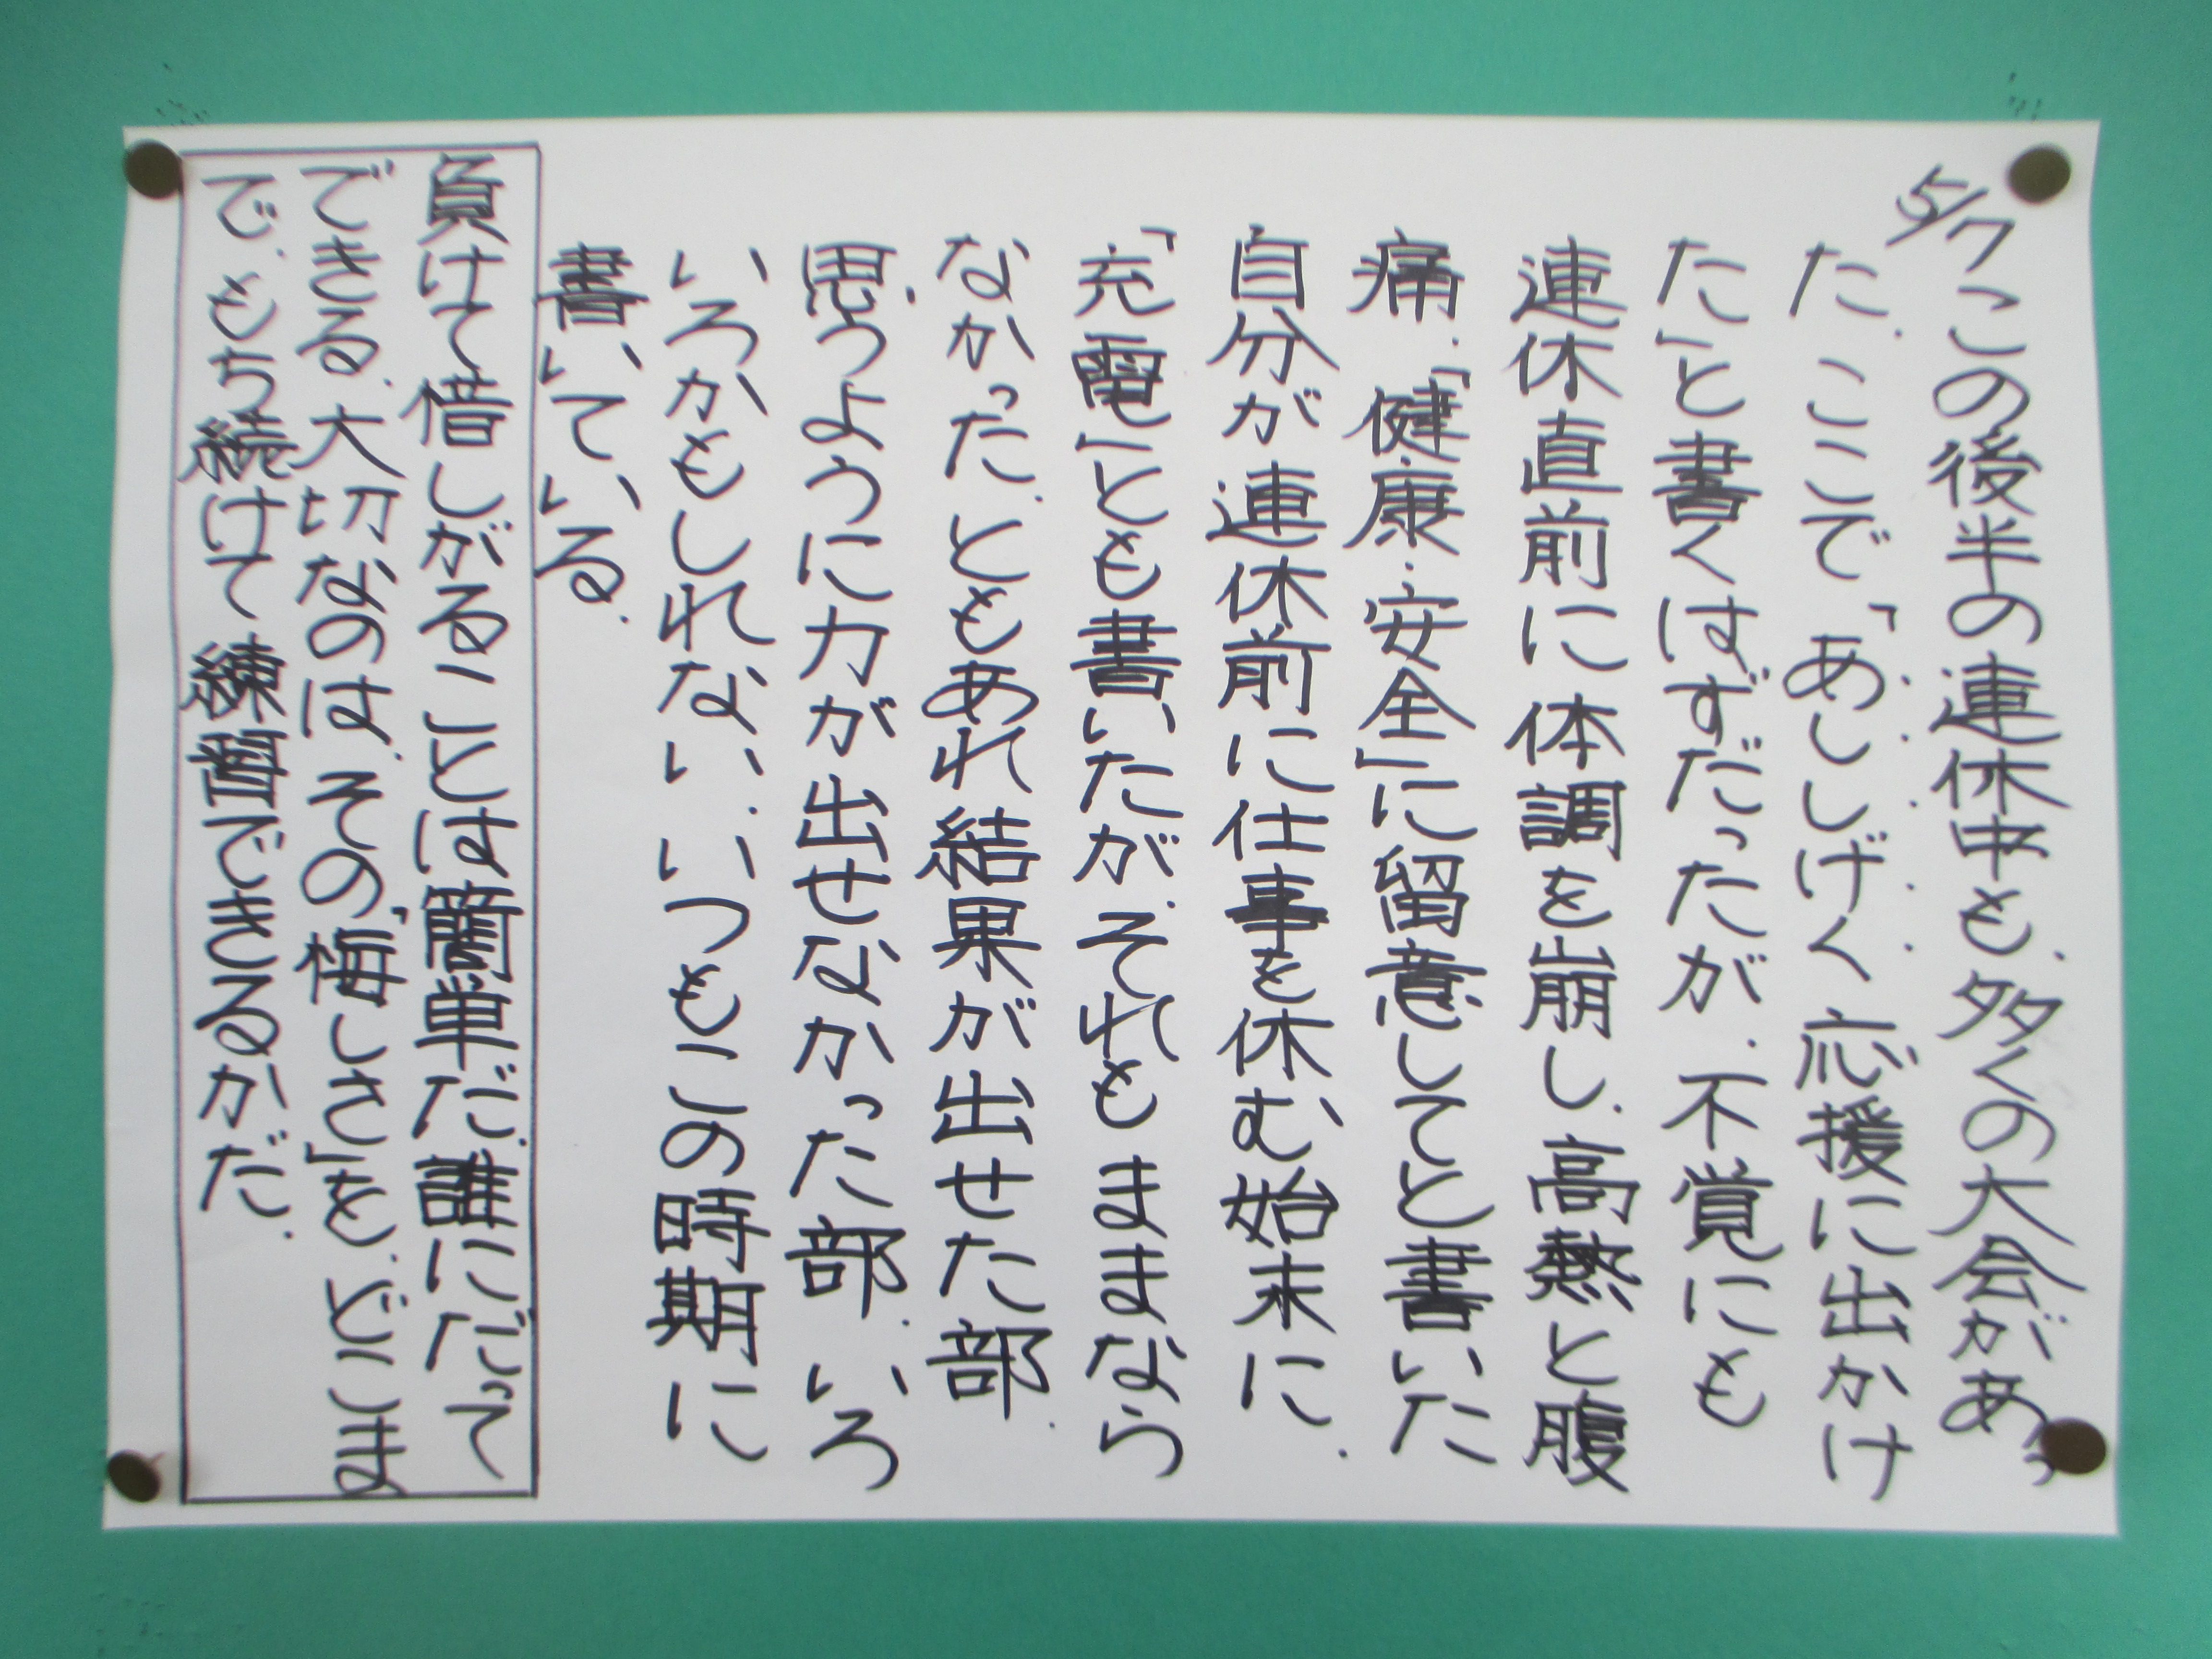 5/7 この後半の連休中も、多くの大会があっ
た。ここで「あししげく応援に出かけ
た」と書くはずだったが、不覚にも
連休直前に体調を崩し、高熱と腹
痛。「健康・安全」に留意してと書いた
自分が連休前に仕事を休む始末に。
「充電」とも書いたが、それもままなら
なかった。ともあれ結果が出せた部、
思うように力が出せなかった部、いろ
いろかもしれない。いつもこの時期に
書いている。
負けて惜しがることは簡単だ。誰にだって
できる。大切なのは、その「悔しさ」を、どこま
で、もち続けて練習できるかだ。